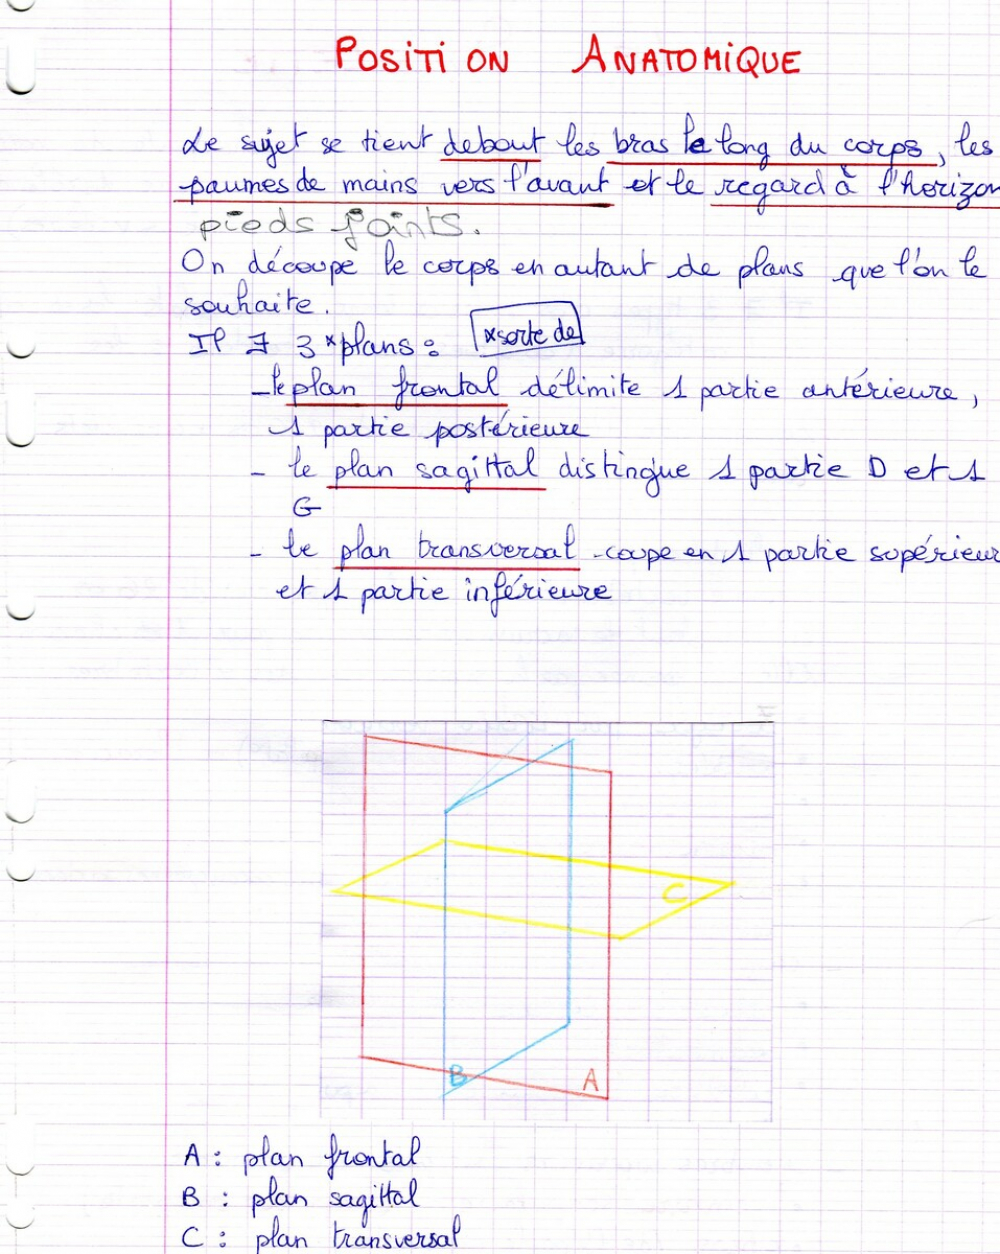 POSITION ANATOMIQUE
Le sujet se tient debout les bras le long du corps, les
paumes de mains vers l'avant et le regard à l'horizon
pieds joints.
On découpe le corps en autant de plans que l'on le
souhaite.
Il ∃ 3 *plans : *sorte de
- le plan frontal délimite 1 partie antérieure,
1 partie postérieure
- le plan sagittal distingue 1 partie D et 1
G
- le plan transversal coupe en 1 partie supérieur
et 1 partie inférieure
C
B
A
A : plan frontal
B : plan sagittal
C : plan transversal